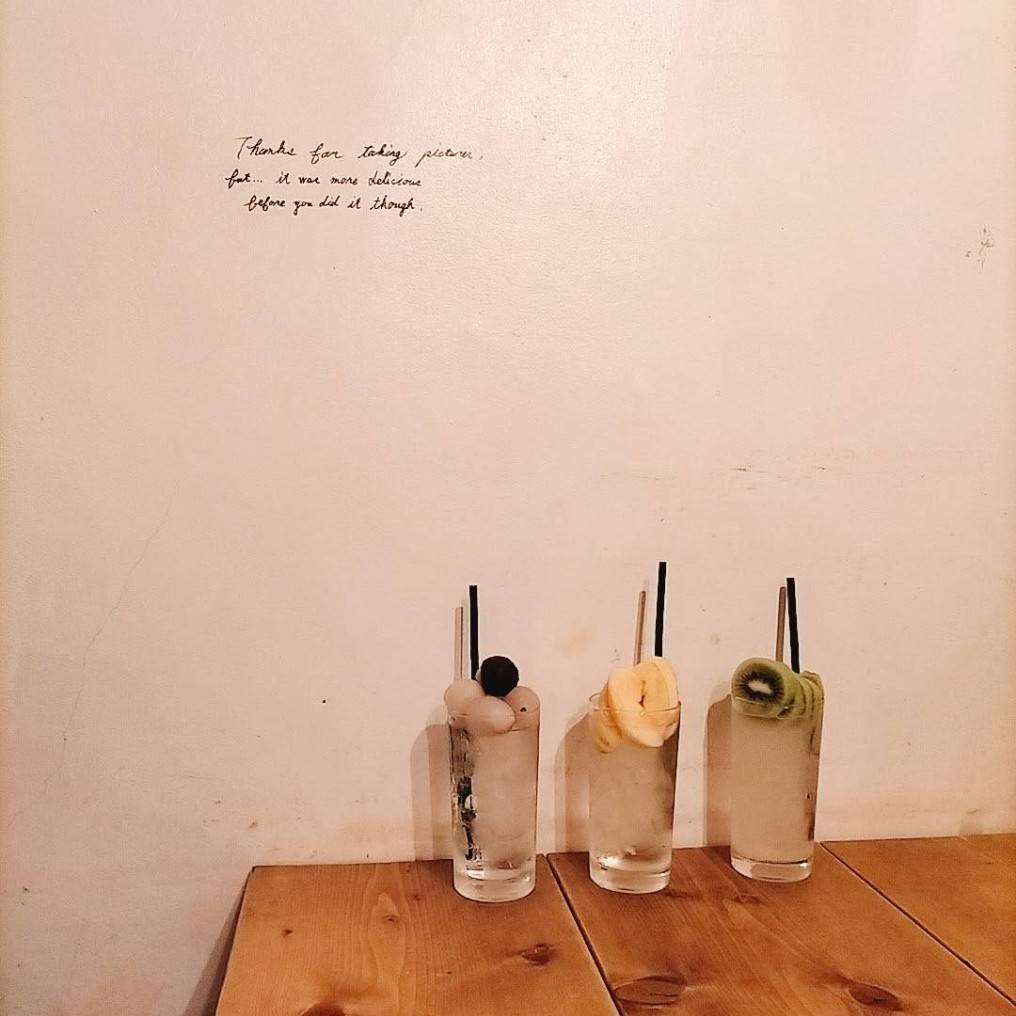 Thanks for taking pictures,
but... it was more delicious
before you did it though.